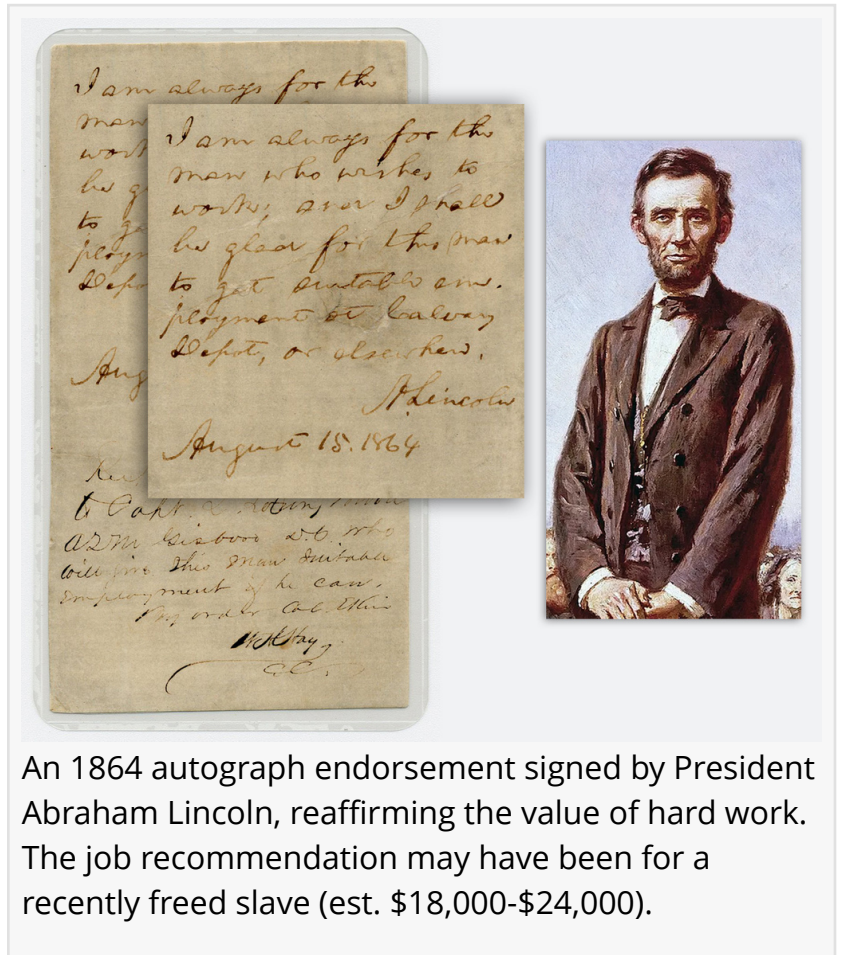 I am always for the
man
work
be g
to ge
ploym
Depo
Aug
I am always for the
man who wishes to
work; and I shall
be glad for this man
to get suitable em-
ployment at Calvary
Depot, or elsewhere.
A. Lincoln
August 15. 1864
to Capt.
AQM Gisboro D.C. who
will give this man suitable
employment if he can.
By order
An 1864 autograph endorsement signed by President
Abraham Lincoln, reaffirming the value of hard work.
The job recommendation may have been for a
recently freed slave (est. $18,000-$24,000).